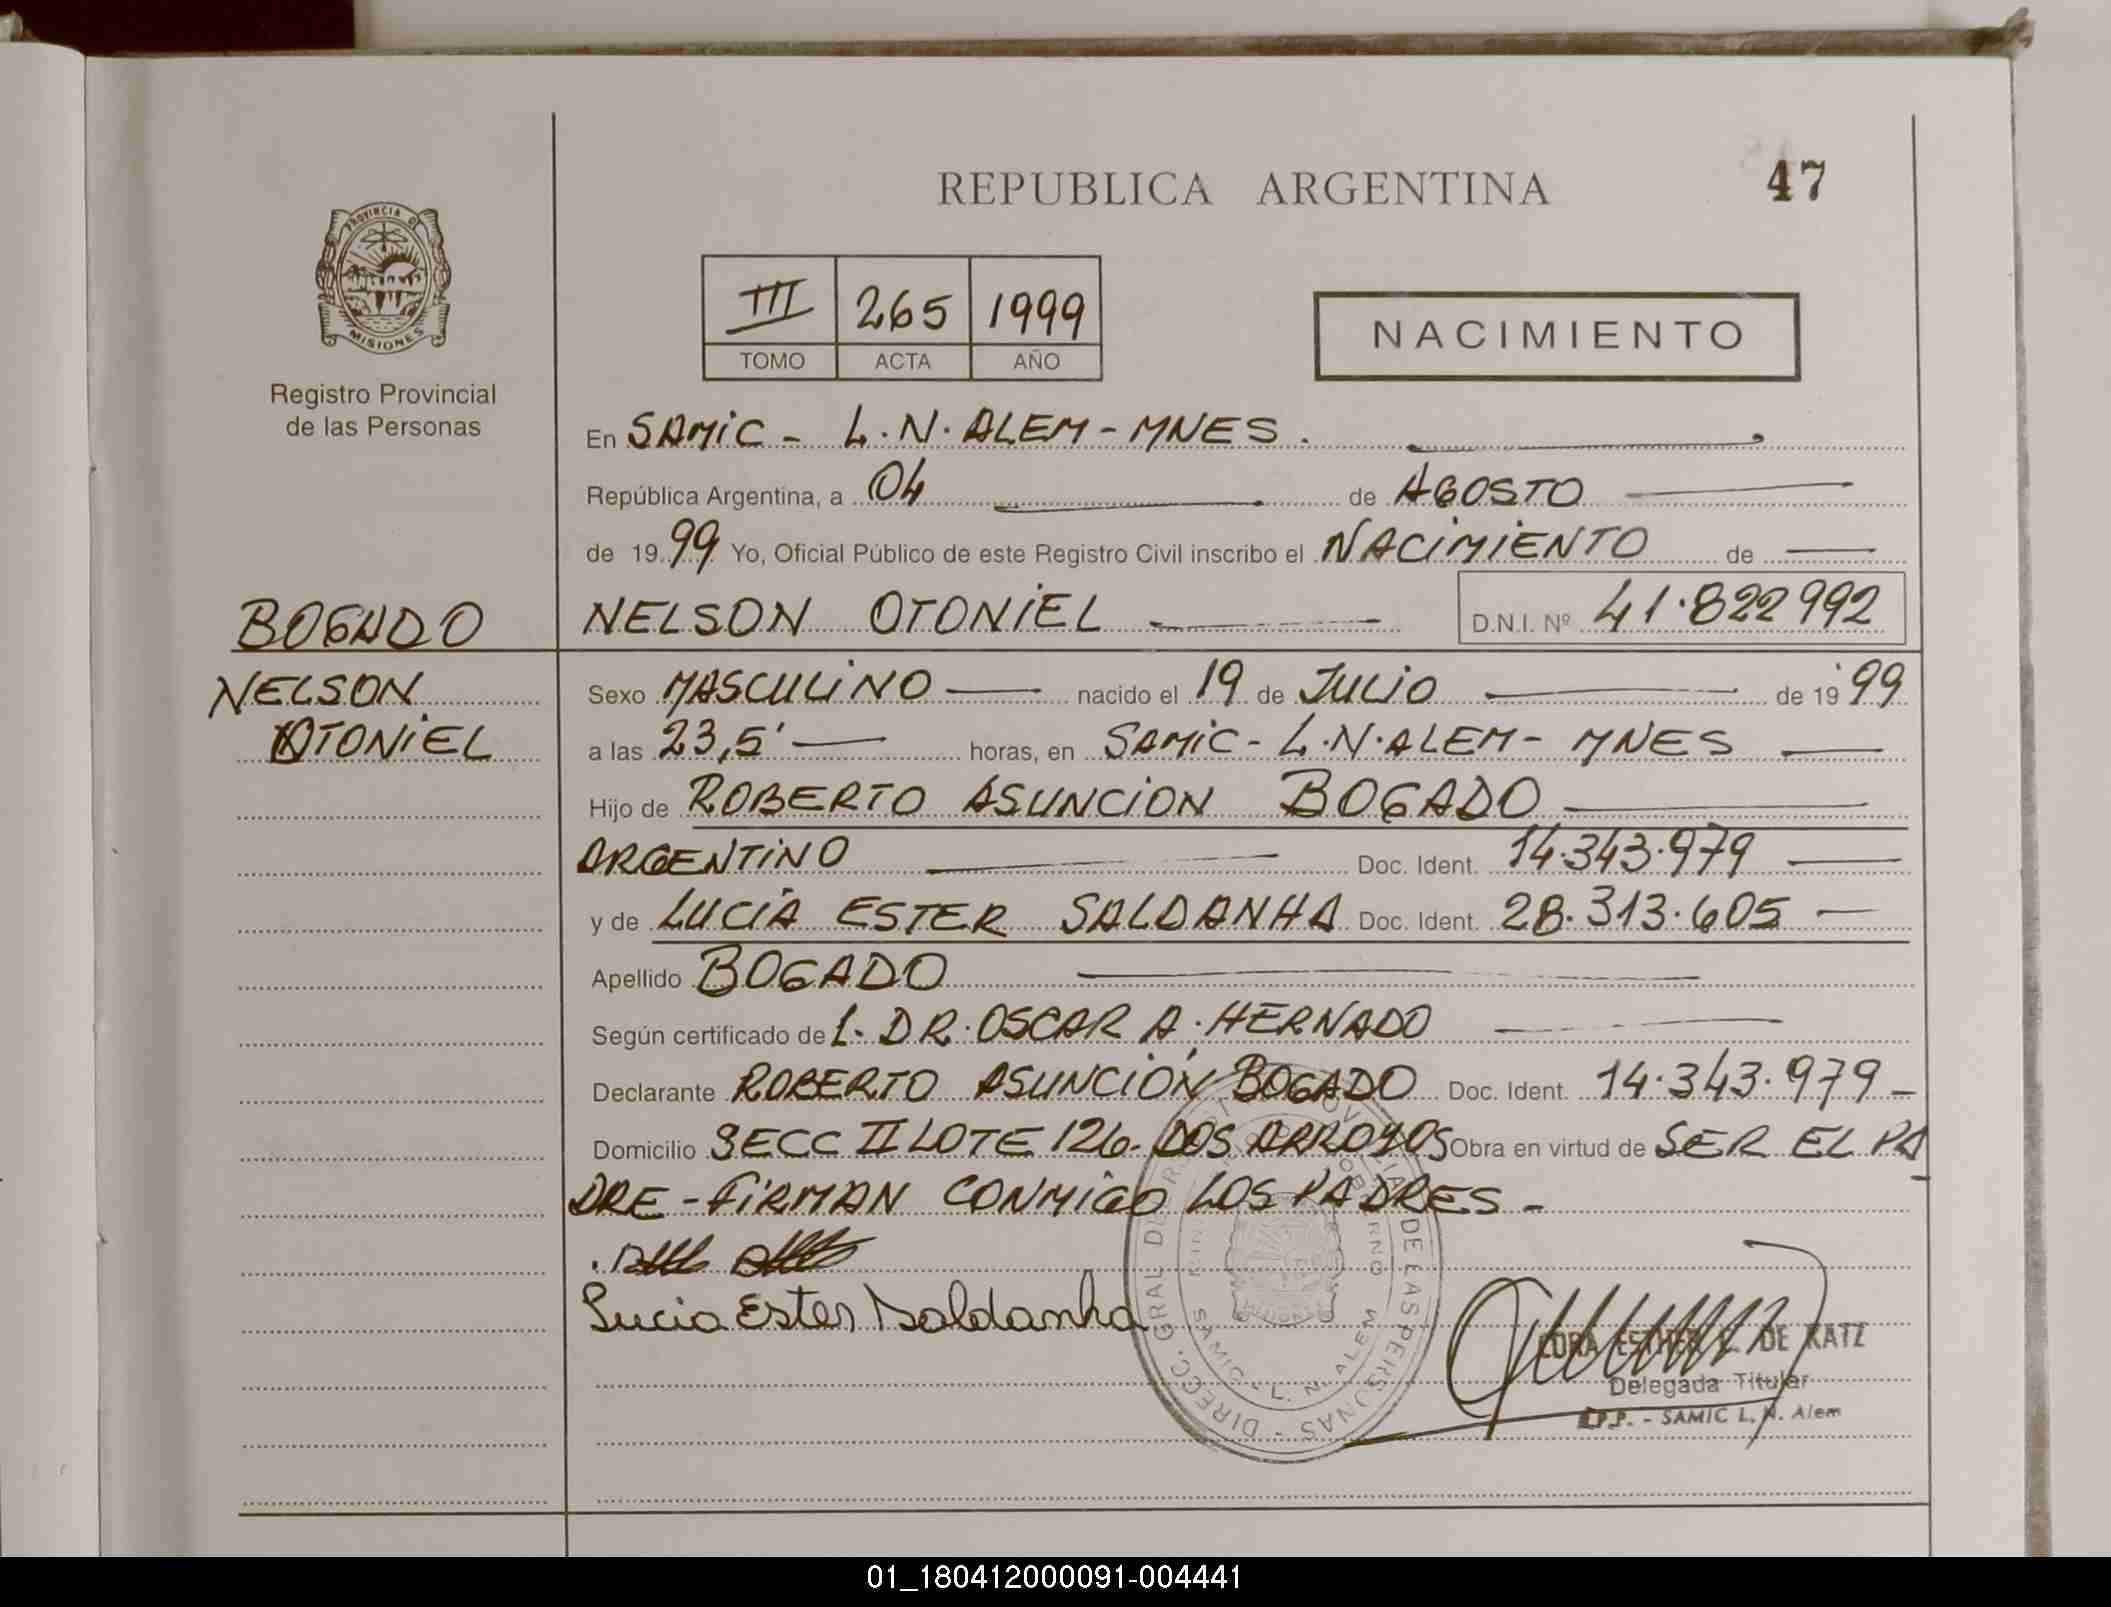 REPUBLICA ARGENTINA
47
PROVINCIA D
MISIONES
Registro Provincial
de las Personas
III 265 1999
TOMO ACTA AÑO
NACIMIENTO
En SAMIC - L.N. ALEM - MNES.
República Argentina, a 04 de AGOSTO
de 1999 Yo, Oficial Público de este Registro Civil inscribo el NACIMIENTO de
BOGADO NELSON OTONIEL D.N.I. Nº 41.822992
NELSON Sexo MASCULINO nacido el 19 de JULIO de 19 99
OTONIEL a las 23,5' horas, en SAMIC - L.N. ALEM - MNES
Hijo de ROBERTO ASUNCION BOGADO
ARGENTINO Doc. Ident. 14.343.979
y de LUCIA ESTER SALDANHA Doc. Ident. 28.313.605 -
Apellido BOGADO
Según certificado de L. DR. OSCAR A. HERNADO
Declarante ROBERTO ASUNCIÓN BOGADO Doc. Ident. 14.343.979 -
Domicilio SECC II LOTE 126 - DOS ARROYOS Obra en virtud de SER EL PA
DRE - FIRMAN CONMIGO LOS PADRES -
Lucia Ester Saldanha
DIRECC. GRAL DE DE LAS PERSONAS
SAMIC - L. N. ALEM
ESTHER DE KATZ
Delegada Titular
- SAMIC L. N. Alem
01_180412000091-004441